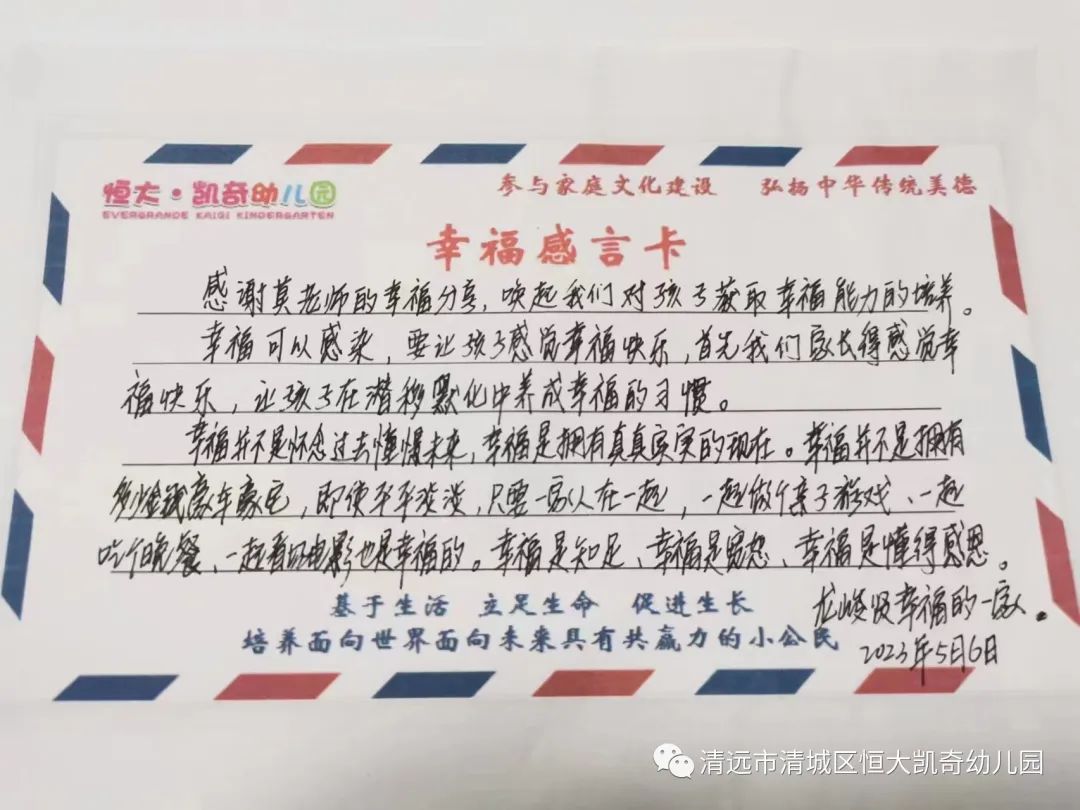 恒大·凯奇幼儿园
EVERGRANDE KAIQI KINDERGARTEN
参与家庭文化建设 弘扬中华传统美德
幸福感言卡
感谢莫老师的幸福分享，唤起我们对孩子获取幸福能力的培养。
幸福可以感染，要让孩子感觉幸福快乐，首先我们家长得感觉幸
福快乐，让孩子在潜移默化中养成幸福的习惯。
幸福并不是怀念过去憧憬未来，幸福是拥有真真实实的现在。幸福并不是拥有
多少金钱豪车豪宅，即使平平淡淡，只要一家人在一起，一起做个亲子游戏、一起
吃个晚餐、一起看场电影也是幸福的。幸福是知足、幸福是宽恕、幸福是懂得感恩。
龙峻贤幸福的一家人。
2023年5月6日
基于生活 立足生命 促进生长
培养面向世界面向未来具有共赢力的小公民
清远市清城区恒大凯奇幼儿园